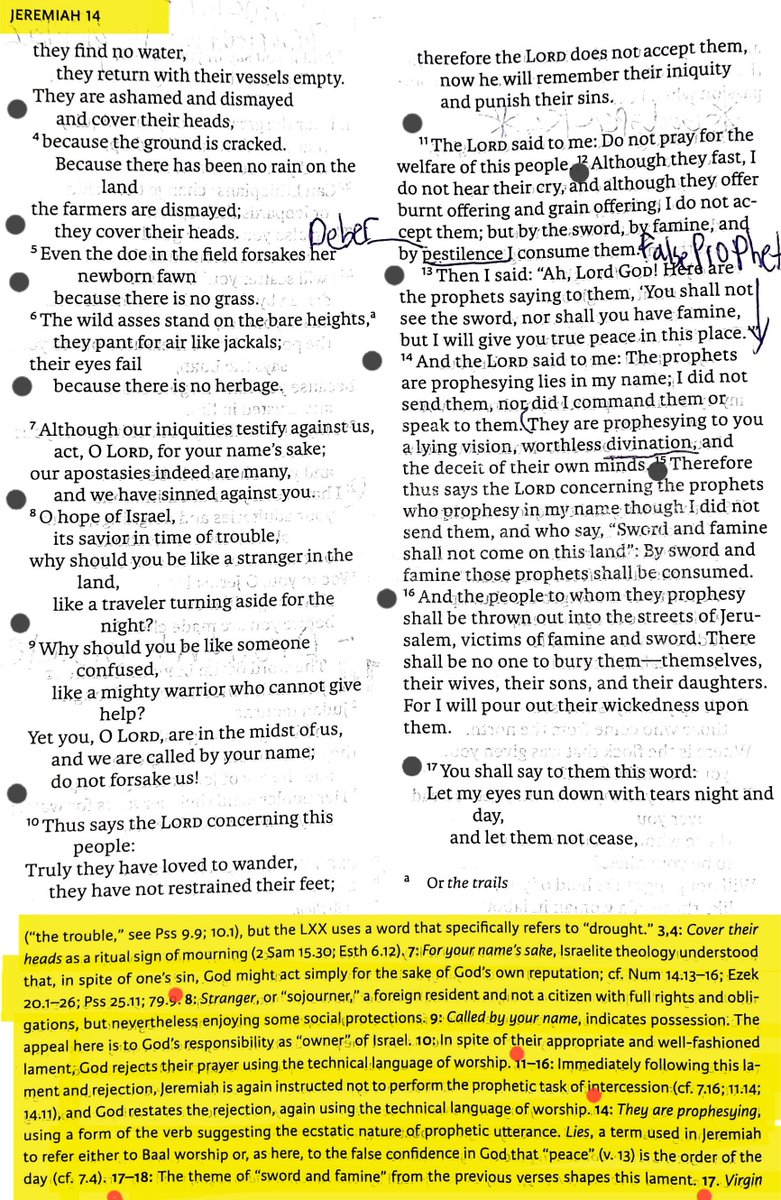 JEREMIAH 14
they find no water,
they return with their vessels empty.
They are ashamed and dismayed
and cover their heads,
4 because the ground is cracked.
Because there has been no rain on the
land
the farmers are dismayed;
they cover their heads.
5 Even the doe in the field forsakes her
newborn fawn
because there is no grass.
6 The wild asses stand on the bare heights,a
they pant for air like jackals;
their eyes fail
because there is no herbage.
7 Although our iniquities testify against us,
act, O LORD, for your name's sake;
our apostasies indeed are many,
and we have sinned against you.
8 O hope of Israel,
its savior in time of trouble,
why should you be like a stranger in the
land,
like a traveler turning aside for the
night?
9 Why should you be like someone
confused,
like a mighty warrior who cannot give
help?
Yet you, O LORD, are in the midst of us,
and we are called by your name;
do not forsake us!
10 Thus says the LORD concerning this
people:
Truly they have loved to wander,
they have not restrained their feet;
therefore the LORD does not accept them,
now he will remember their iniquity
and punish their sins.
11 The LORD said to me: Do not pray for the
welfare of this people. 12 Although they fast, I
do not hear their cry, and although they offer
burnt offering and grain offering, I do not ac-
cept them; but by the sword, by famine, and
Deber
by pestilence I consume them.
False Prophet
13 Then I said: "Ah, Lord GOD! Here are
the prophets saying to them, 'You shall not
see the sword, nor shall you have famine,
but I will give you true peace in this place.'"
14 And the LORD said to me: The prophets
are prophesying lies in my name; I did not
send them, nor did I command them or
speak to them. They are prophesying to you
a lying vision, worthless divination, and
the deceit of their own minds. 15 Therefore
thus says the LORD concerning the prophets
who prophesy in my name though I did not
send them, and who say, "Sword and famine
shall not come on this land": By sword and
famine those prophets shall be consumed.
16 And the people to whom they prophesy
shall be thrown out into the streets of Jeru-
salem, victims of famine and sword. There
shall be no one to bury them—themselves,
their wives, their sons, and their daughters.
For I will pour out their wickedness upon
them.
17 You shall say to them this word:
Let my eyes run down with tears night and
day,
and let them not cease,
a Or the trails
("the trouble," see Pss 9.9; 10.1), but the LXX uses a word that specifically refers to "drought." 3,4: Cover their
heads as a ritual sign of mourning (2 Sam 15.30; Esth 6.12). 7: For your name's sake, Israelite theology understood
that, in spite of one's sin, God might act simply for the sake of God's own reputation; cf. Num 14.13–16; Ezek
20.1–26; Pss 25.11; 79.9. 8: Stranger, or "sojourner," a foreign resident and not a citizen with full rights and obli-
gations, but nevertheless enjoying some social protections. 9: Called by your name, indicates possession. The
appeal here is to God's responsibility as "owner" of Israel. 10: In spite of their appropriate and well-fashioned
lament, God rejects their prayer using the technical language of worship. 11–16: Immediately following this la-
ment and rejection, Jeremiah is again instructed not to perform the prophetic task of intercession (cf. 7.16; 11.14;
14.11), and God restates the rejection, again using the technical language of worship. 14: They are prophesying,
using a form of the verb suggesting the ecstatic nature of prophetic utterance. Lies, a term used in Jeremiah
to refer either to Baal worship or, as here, to the false confidence in God that "peace" (v. 13) is the order of the
day (cf. 7.4). 17–18: The theme of "sword and famine" from the previous verses shapes this lament. 17. Virgin